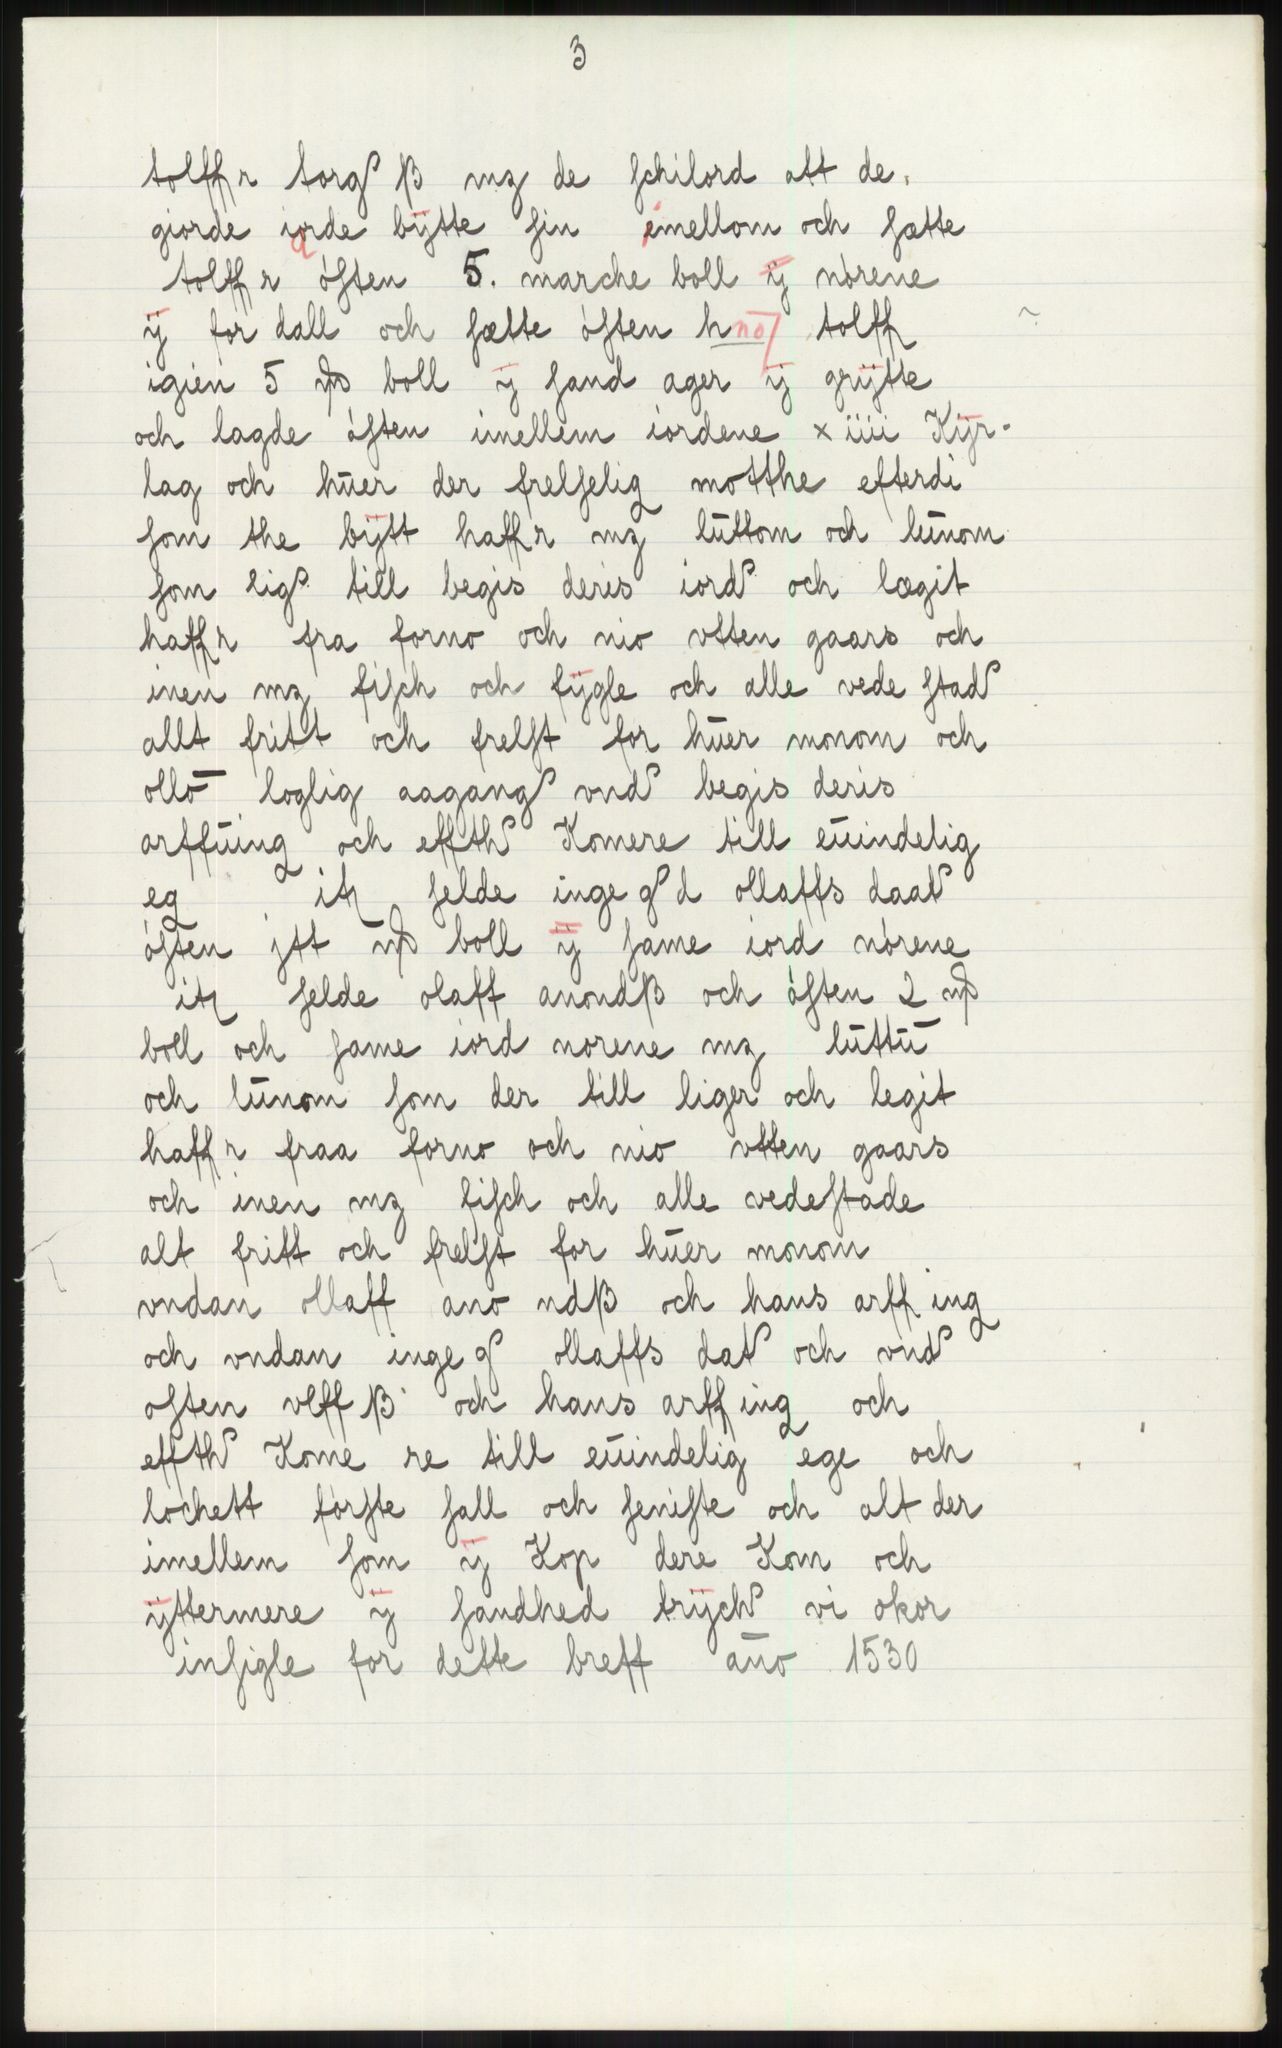 3
tolffr torg ß mz de schilord att de.
giorde iorde bÿtte sin imellom och sætte
tolffr østen 5. marche boll ÿ nørene
ÿ fordall och sætte østen h no tolff
igien 5 boll ÿ sand ager ÿ grÿtte
och lagde østen imellem iordene x iiii Kÿr-
lag och huer der frelselig motthe efterdi
som the bÿtt haffr mz luttom och lunom
som lig till begis deris iord och lægit
haffr fra forno och nio vtten gaars och
inen mz fisch och fÿgle och alle vede stad
allt fritt och frelst for huer monom och
ollō loglig aagang vnd begis deris
arffuing och effth Komere till euindelig
eg it selde inge g d ollaffs daat
østen jtt boll ÿ same iord nørene
it selde olaff anondß och østen 2
boll och same iord norene mz luttū
och lunom som der till liger och legit
haffr fraa forno och nio vtten gaars
och inen mz fisch och alle vedestade
alt fritt och frelst for huer monom
vndan ollaff ano ndß och hans arffing
och vndan inge g ollaffs dat och vnd
osten vlff ß och hans arffing och
effth Kome re till euindelig ege och
lochett første sall och seniste och alt der
imellem som ÿ Kop dere Kom och
ÿttermere ÿ sandhed trÿch vi okor
insigle for dette breff año 1530